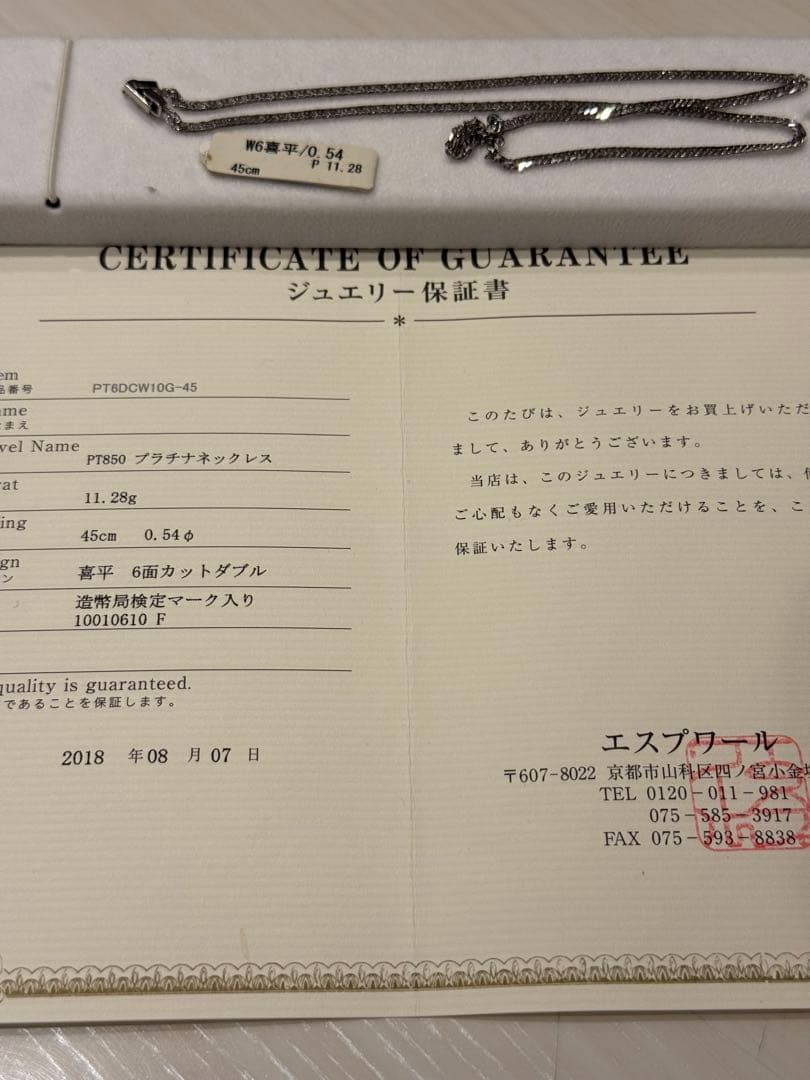 W6喜平/0.54
P 11.28
45cm
CERTIFICATE OF GUARANTEE
ジュエリー保証書
*
em
品番号 PT6DCW10G-45
ame
まえ
vel Name
PT850 プラチナネックレス
rat
11.28g
ing
45cm 0.54φ
gn
ン 喜平 6面カットダブル
造幣局検定マーク入り
10010610 F
quality is guaranteed.
であることを保証します。
2018 年 08 月 07 日
このたびは、ジュエリーをお買上げいただ
まして、ありがとうございます。
当店は、このジュエリーにつきましては、
ご心配もなくご愛用いただけることを、こ
保証いたします。
エスプワール
〒607-8022 京都市山科区四ノ宮小金
TEL 0120-011-981
075-585-3917
FAX 075-593-8838